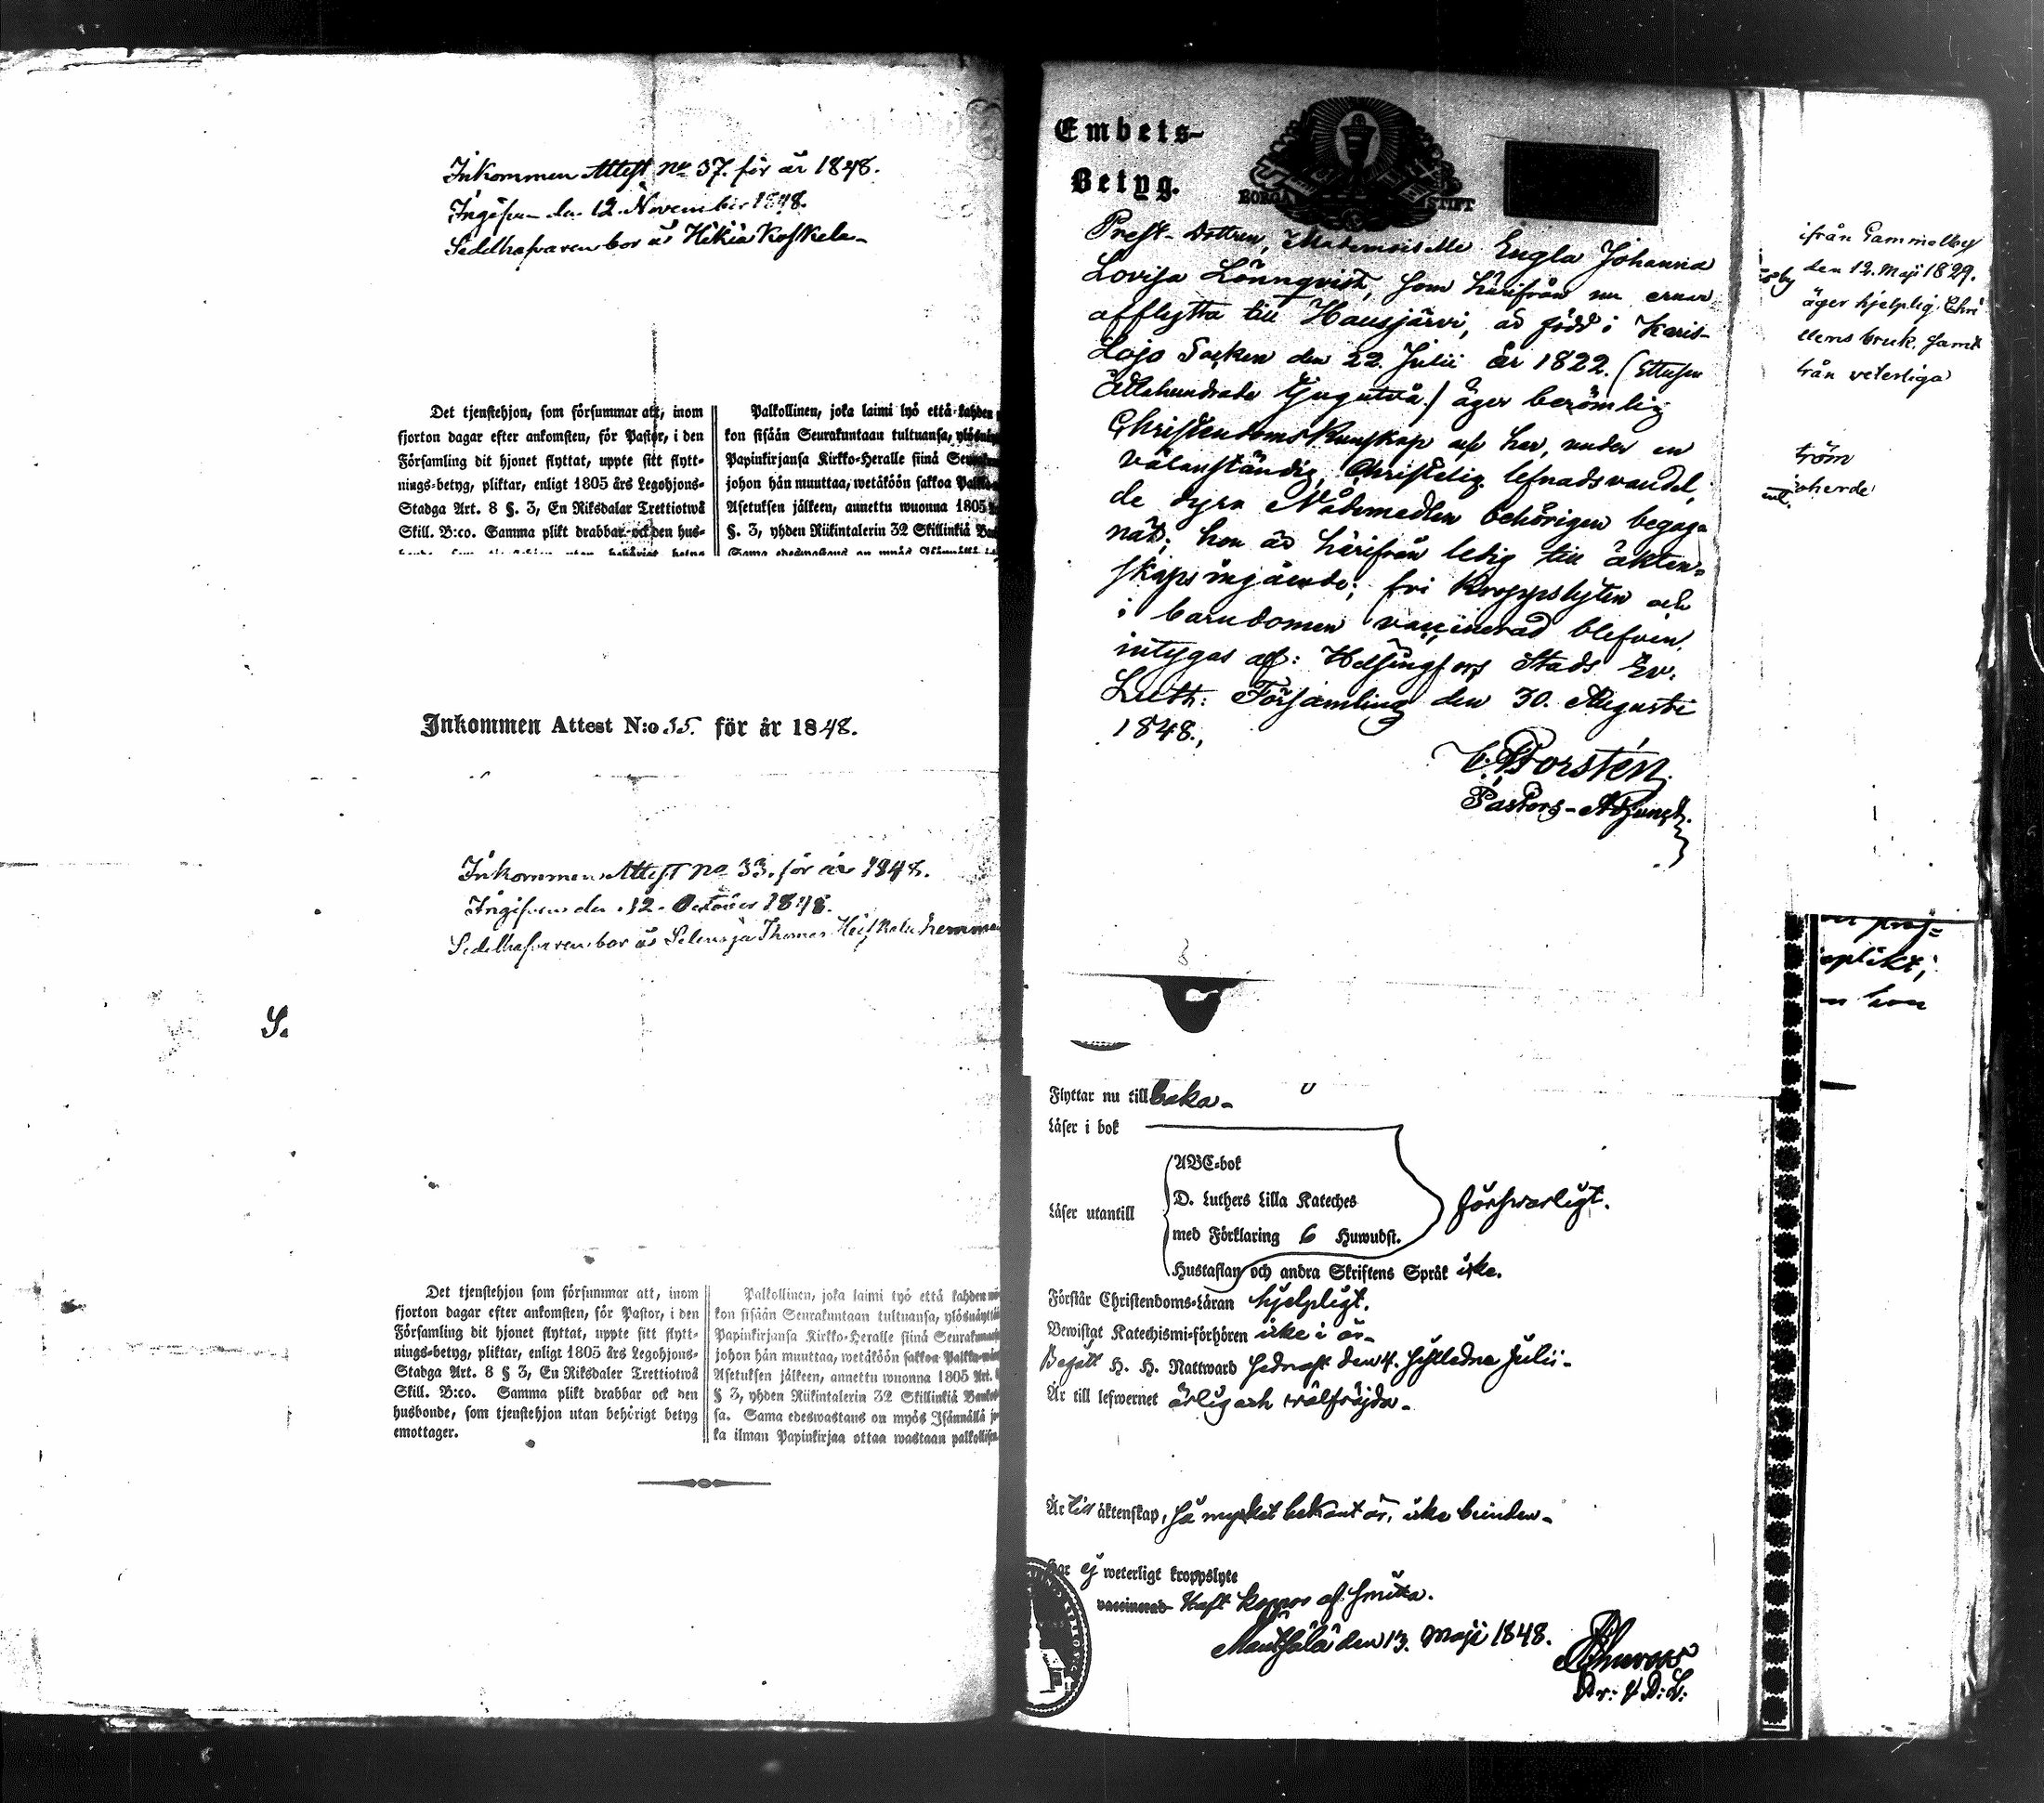 Inkommen Attest no 37. för år 1848.
Ingifven den 12 November 1848.
Sedelhafvaren bor å Hikiä Koskela
Det tjenstehjon, som försummar att, inom
fjorton dagar efter ankomsten, för Pastor, i den
Församling dit hjonet flyttat, uppte sitt flytt-
nings-betyg, pliktar, enligt 1805 års Legohjons-
Stadga Art. 8 §. 3, En Riksdalar Trettiotwå
Skill. B:co. Samma plikt drabbar ock den hus-
Palkollinen, joka laimi lyö että kahden
kon sisään Seurakuntaan tultuansa,
Papinkirjansa Kirkko-Heralle siinä
johon hän muuttaa, wetäköön sakkoa
Asetuksen jälkeen, annettu wuonna 1805
§. 3, yhden Riikintalerin 32 Skillinkiä
Inkommen Attest N:o 35. för år 1848.
Inkommen Attest no 33. för år 1848.
Ingifven den 12. October 1848.
Sedelhafvaren bor å Thomas
S.
Det tjenstehjon som försummar att, inom
fjorton dagar efter ankomsten, för Pastor, i den
Församling dit hjonet flyttat, uppte sitt flytt-
nings-betyg, pliktar, enligt 1805 års Legohjons-
Stadga Art. 8 § 3, En Riksdaler Trettiotwå
Skill. B:co. Samma plikt drabbar ock den
husbonde, som tjenstehjon utan behörigt betyg
emottager.
Palkollinen, joka laimi lyö että kahden
kon sisään Seurakuntaan tultuansa, ylösnäyttä
Papinkirjansa Kirkko-Heralle siinä
johon hän muuttaa, wetäköön sakkoa
Asetuksen jälkeen, annettu wuonna 1805 Art.
§ 3, yhden Riikintalerin 32 Skillinkiä
sa. Sama edeswastaus on myös Isännällä jo-
ka ilman Papinkirjaa ottaa wastaan
Embets-
Betyg.
BORGÅ STIFT
Prest-dottren, Mademoiselle Engla Johanna
Lovisa Lönnqvist, som härifrån nu ernar
afflytta till Hausjärvi, är född i Karis-
Lojo Socken den 22. Julii år 1822. (Ettusen
Åttahundrade tjugutvå.) äger berömlig
Christendomskunskap och har, under en
välanständig, Christelig lefnadsvandel,
de dyra Nådemedlen behörigen begag-
nat; hon är härifrån ledig till äkten-
skaps ingående; fri kroppslyten och
i barndomen vaccinerad blefven,
intygas af: Helsingfors Stads Ev.
Luth: Församling den 30. Augusti
1848.,
Forstén.
Pastors-Adjunct.
Flyttar nu till baka
Läser i bok
ABC-bok
Läser utantill
D. Luthers Lilla Kateches
med Förklaring 6 Huwudst.
försvarligt.
Hustaflan och andra Skriftens Språk icke.
Förstår Christendoms-Läran hjelpligt.
Bewistat Katechismi-förhören icke i år
Begått H. H. Nattward sednast den 4. sistledne Julii
Är till lefwernet ärlig och välfräjdad
Är till äktenskap, så mycket bekant är, icke bunden
Har ej weterligt kroppslyte
vaccinerad Haft koppor af smitta.
Mäntsälä den 13. Maji 1848.
ifrån Gammelby
den 12. Maji 1829.
äger hjelplig
bruk. samt
från veterliga
tröm
oherde
oplikt;
hon